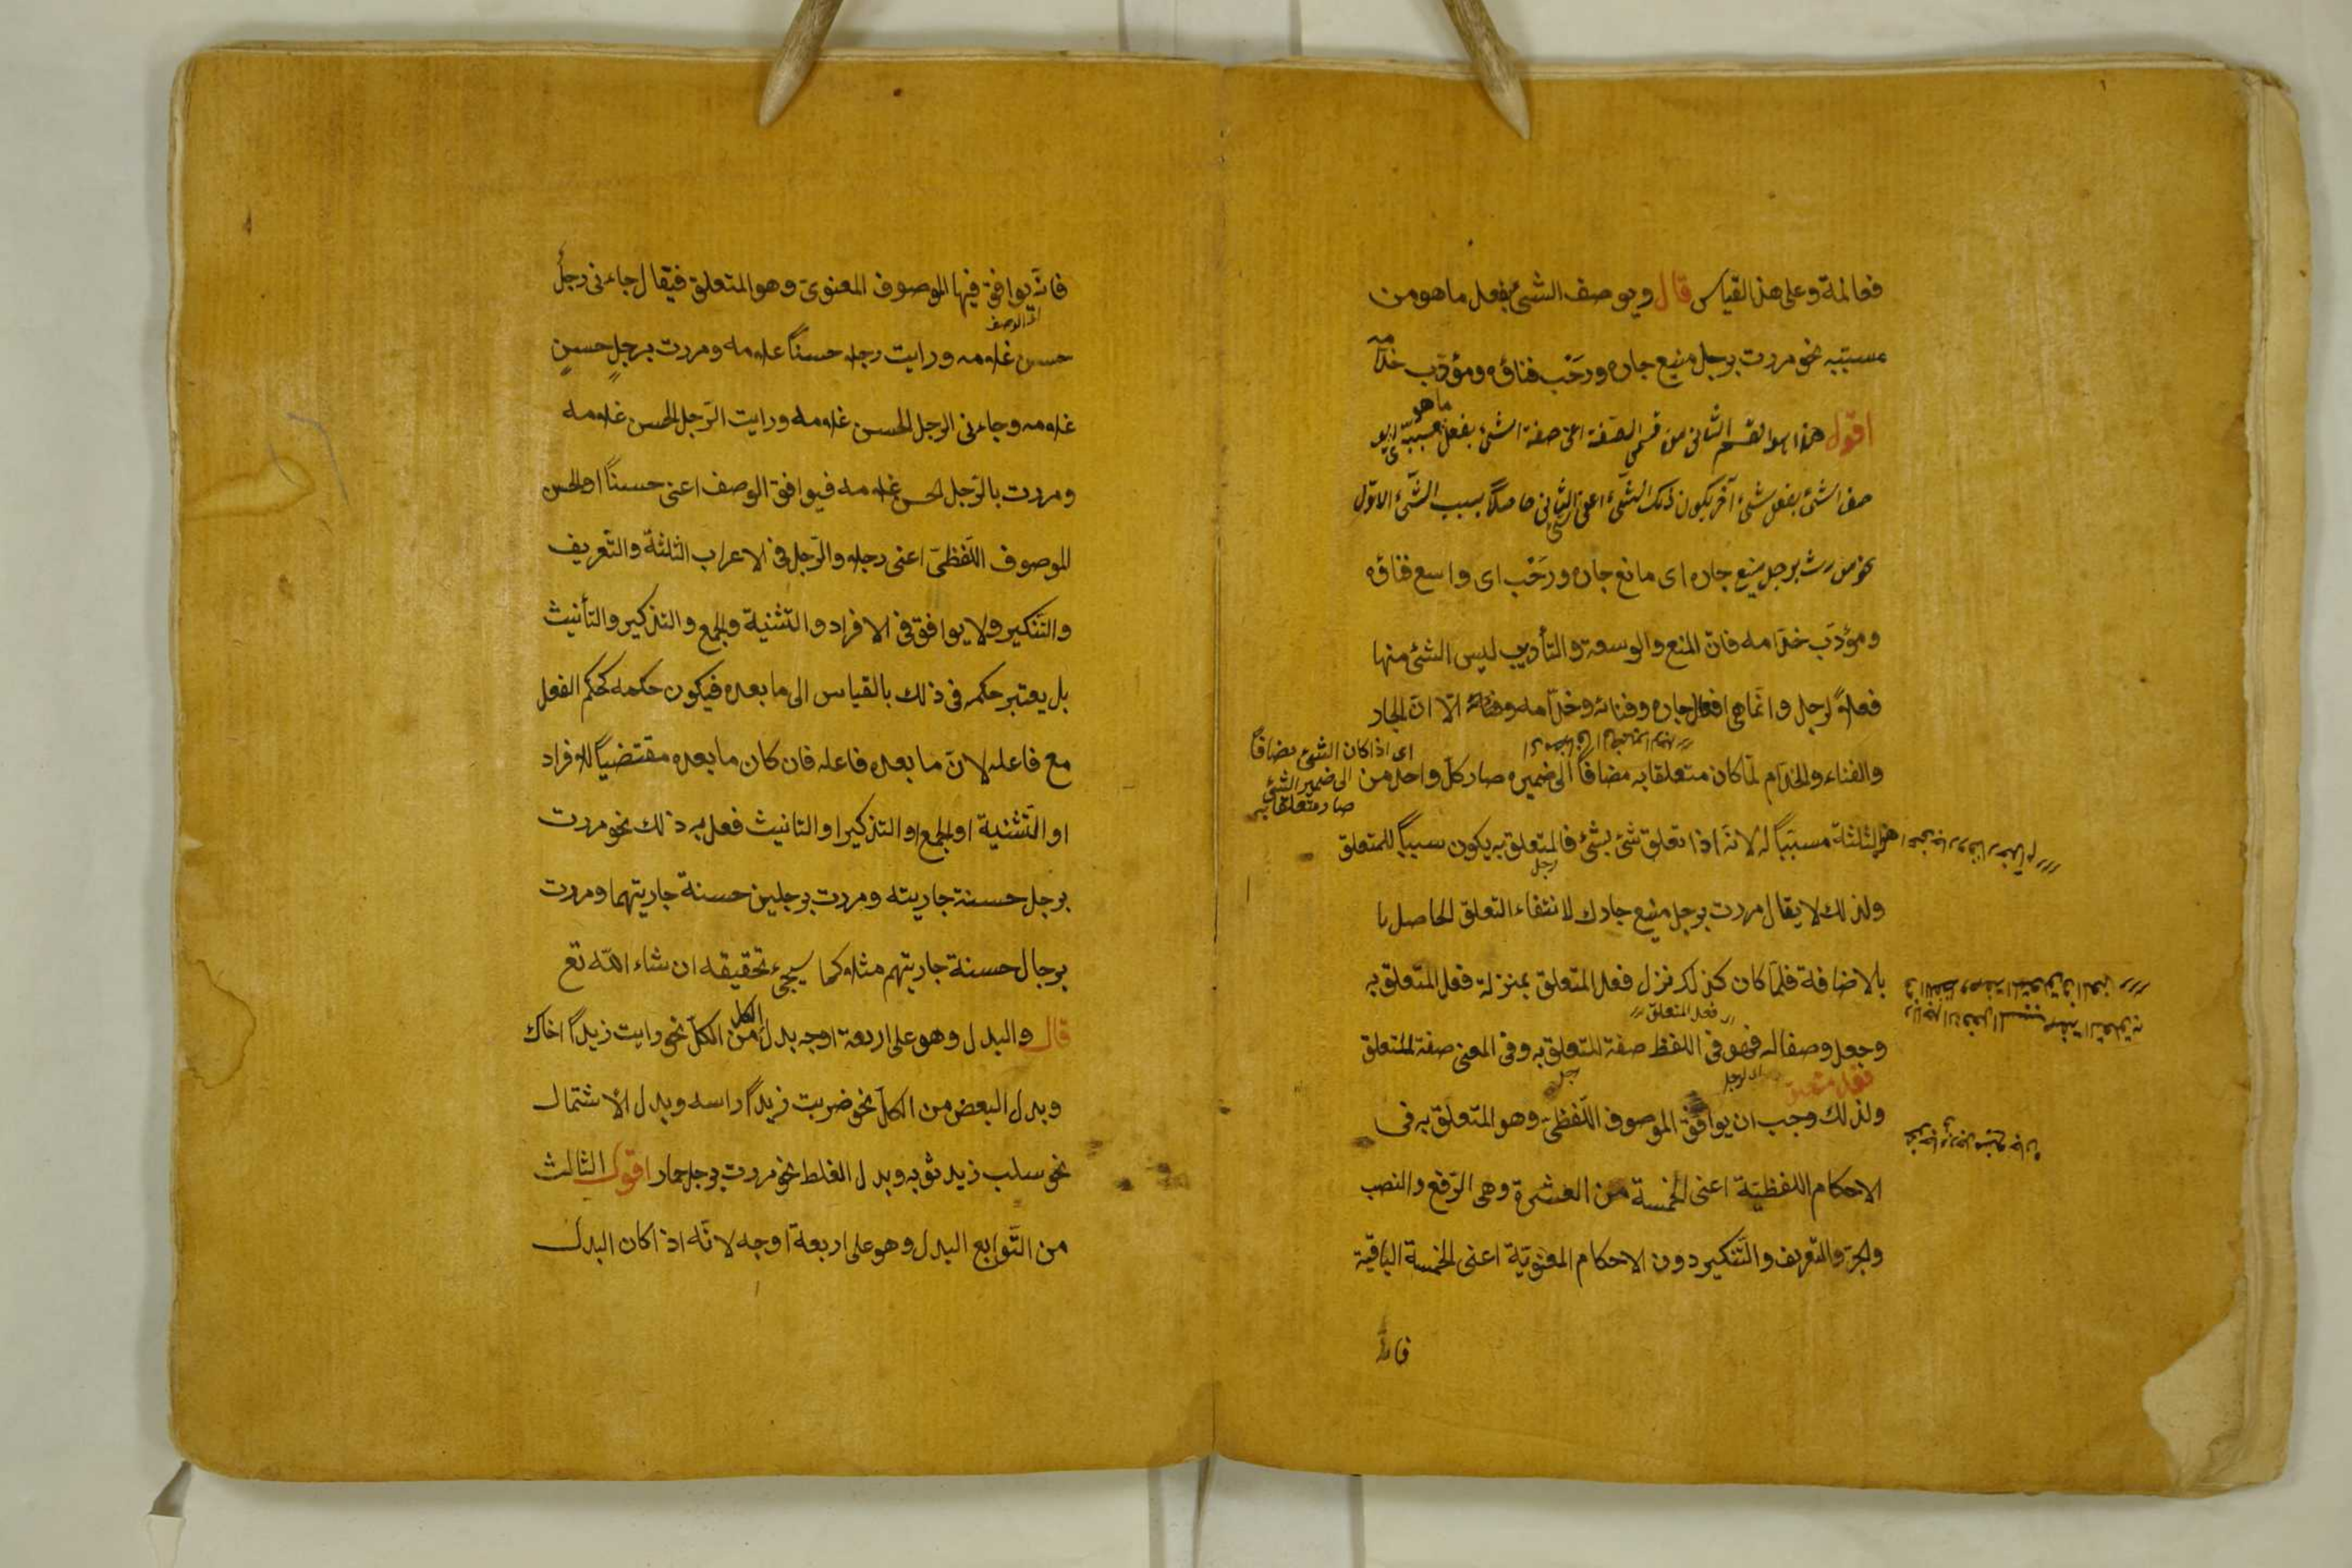 فعالمة وعلى هذا لقياس قال ويوصف الشئ بفعل ما هو من
مسببه نحو مررت برجل منيع جاره ورحب فناؤه ومؤدب خدامه
اقول هذا هو القسم الثانى من قسمى الصفة اعنى صفة الشئ بفعل ما هو مسببه اى يو
صف الشئ بفعل شئ آخر يكون ذلك الشئ اعنى الثانى حاصلا بسبب الشئ الاول
نحو مررت برجل منيع جاره اى مانع جاره ورحب اى واسع فناؤه
ومؤدب خدامه فان المنع والوسعة والتأديب ليس الشئ منها
فعلا لرجل وانما هى افعال جاره وفنائه وخدامه الا ان الجار
اى اذا كان الشئ مضافا
الى ضمير الشئ
صار متعلقا به
والفناء والخدام لما كان متعلقا به مضافا الى ضميره صار كل واحد من
هذه الثلثة مسببا له لانه اذا تعلق شئ بشئ فالمتعلق به يكون سببا للمتعلق
رجل
ولذلك لا يقال مررت برجل منيع جارك لانتفاء التعلق الحاصل با
بالاضافة فلما كان كذلك نزل فعل المتعلق بمنزلة فعل المتعلق به
فعل المتعلق
وجعل وصفا له فهو فى اللفظ صفة للمتعلق به وفى المعنى صفة للمتعلق
رجل
ولذلك وجب ان يوافق الموصوف اللفظى وهو المتعلق به فى
الاحكام اللفظية اعنى الخمسة من العشرة وهى الرفع والنصب
والجر والتعريف والتنكير دون الاحكام المعنوية اعنى الخمسة الباقية
فانه
فانه يوافق فيها الموصوف المعنوى وهو المتعلق فيقال جاءنى رجل
الوصف
حسن غلامه ورايت رجلا حسنا غلامه ومررت برجل حسن
غلامه وجاءنى الرجل الحسن غلامه ورايت الرجل الحسن غلامه
ومررت بالرجل الحسن غلامه فيوافق الوصف اعنى حسنا او الحسن
الموصوف اللفظى اعنى رجلا والرجل فى الاعراب الثلثة والتعريف
والتنكير ولا يوافق فى الافراد والتثنية والجمع والتذكير والتأنيث
بل يعتبر حكمه فى ذلك بالقياس الى ما بعده فيكون حكمه كحكم الفعل
مع فاعله لان ما بعده فاعله فان كان ما بعده مقتضيا للافراد
او التثنية او الجمع او التذكير او التانيث فعل به ذلك نحو مررت
برجل حسنة جاريته ومررت برجلين حسنة جاريتهما ومررت
برجال حسنة جاريتهم مثلا كما سيجئ تحقيقه ان شاء الله تع
قال والبدل وهو على اربعة اوجه بدل الكل من الكل نحو رايت زيدا اخاك
وبدل البعض من الكل نحو ضربت زيدا راسه وبدل الاشتمال
نحو سلب زيد ثوبه وبدل الغلط نحو مررت برجل حمار اقول الثالث
من التوابع البدل وهو على اربعة اوجه لانه اذا كان البدل